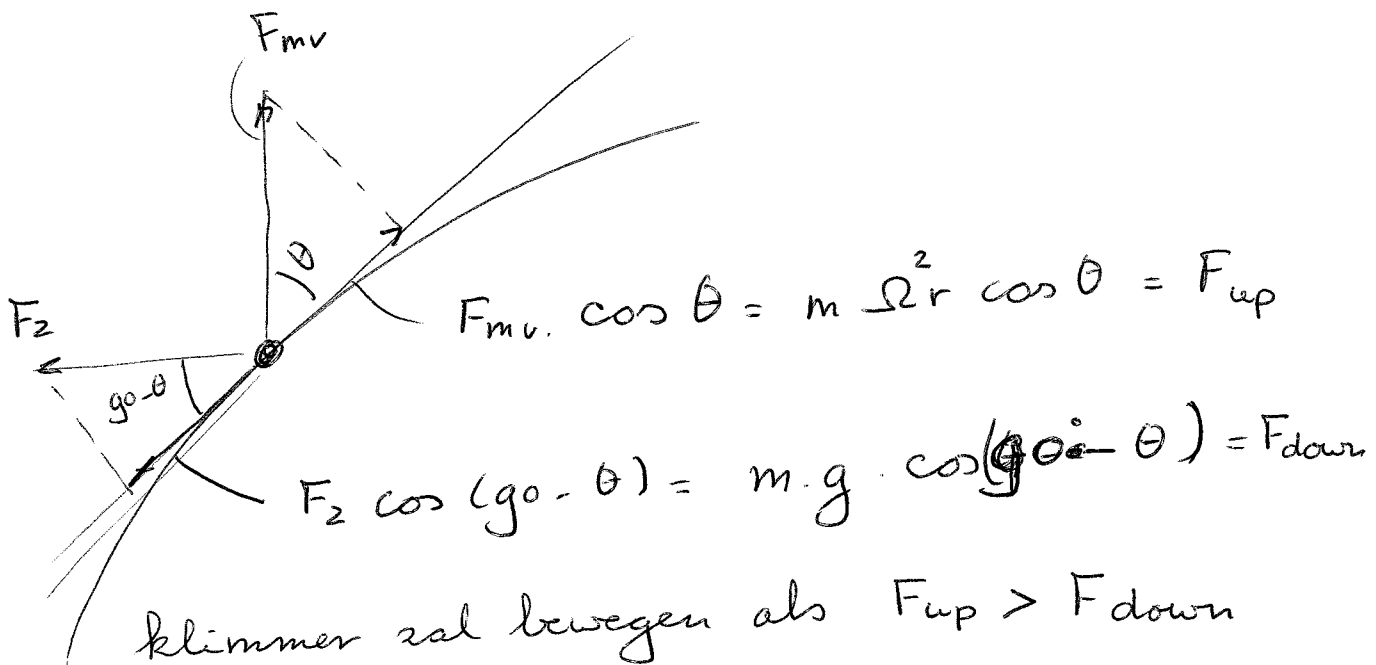 Fmv
θ
Fmv. cos θ = m Ω²r cos θ = Fup
Fz
90-θ
Fz cos (90-θ) = m.g. cos(90°-θ) = Fdown
klimmer zal bewegen als Fup > Fdown